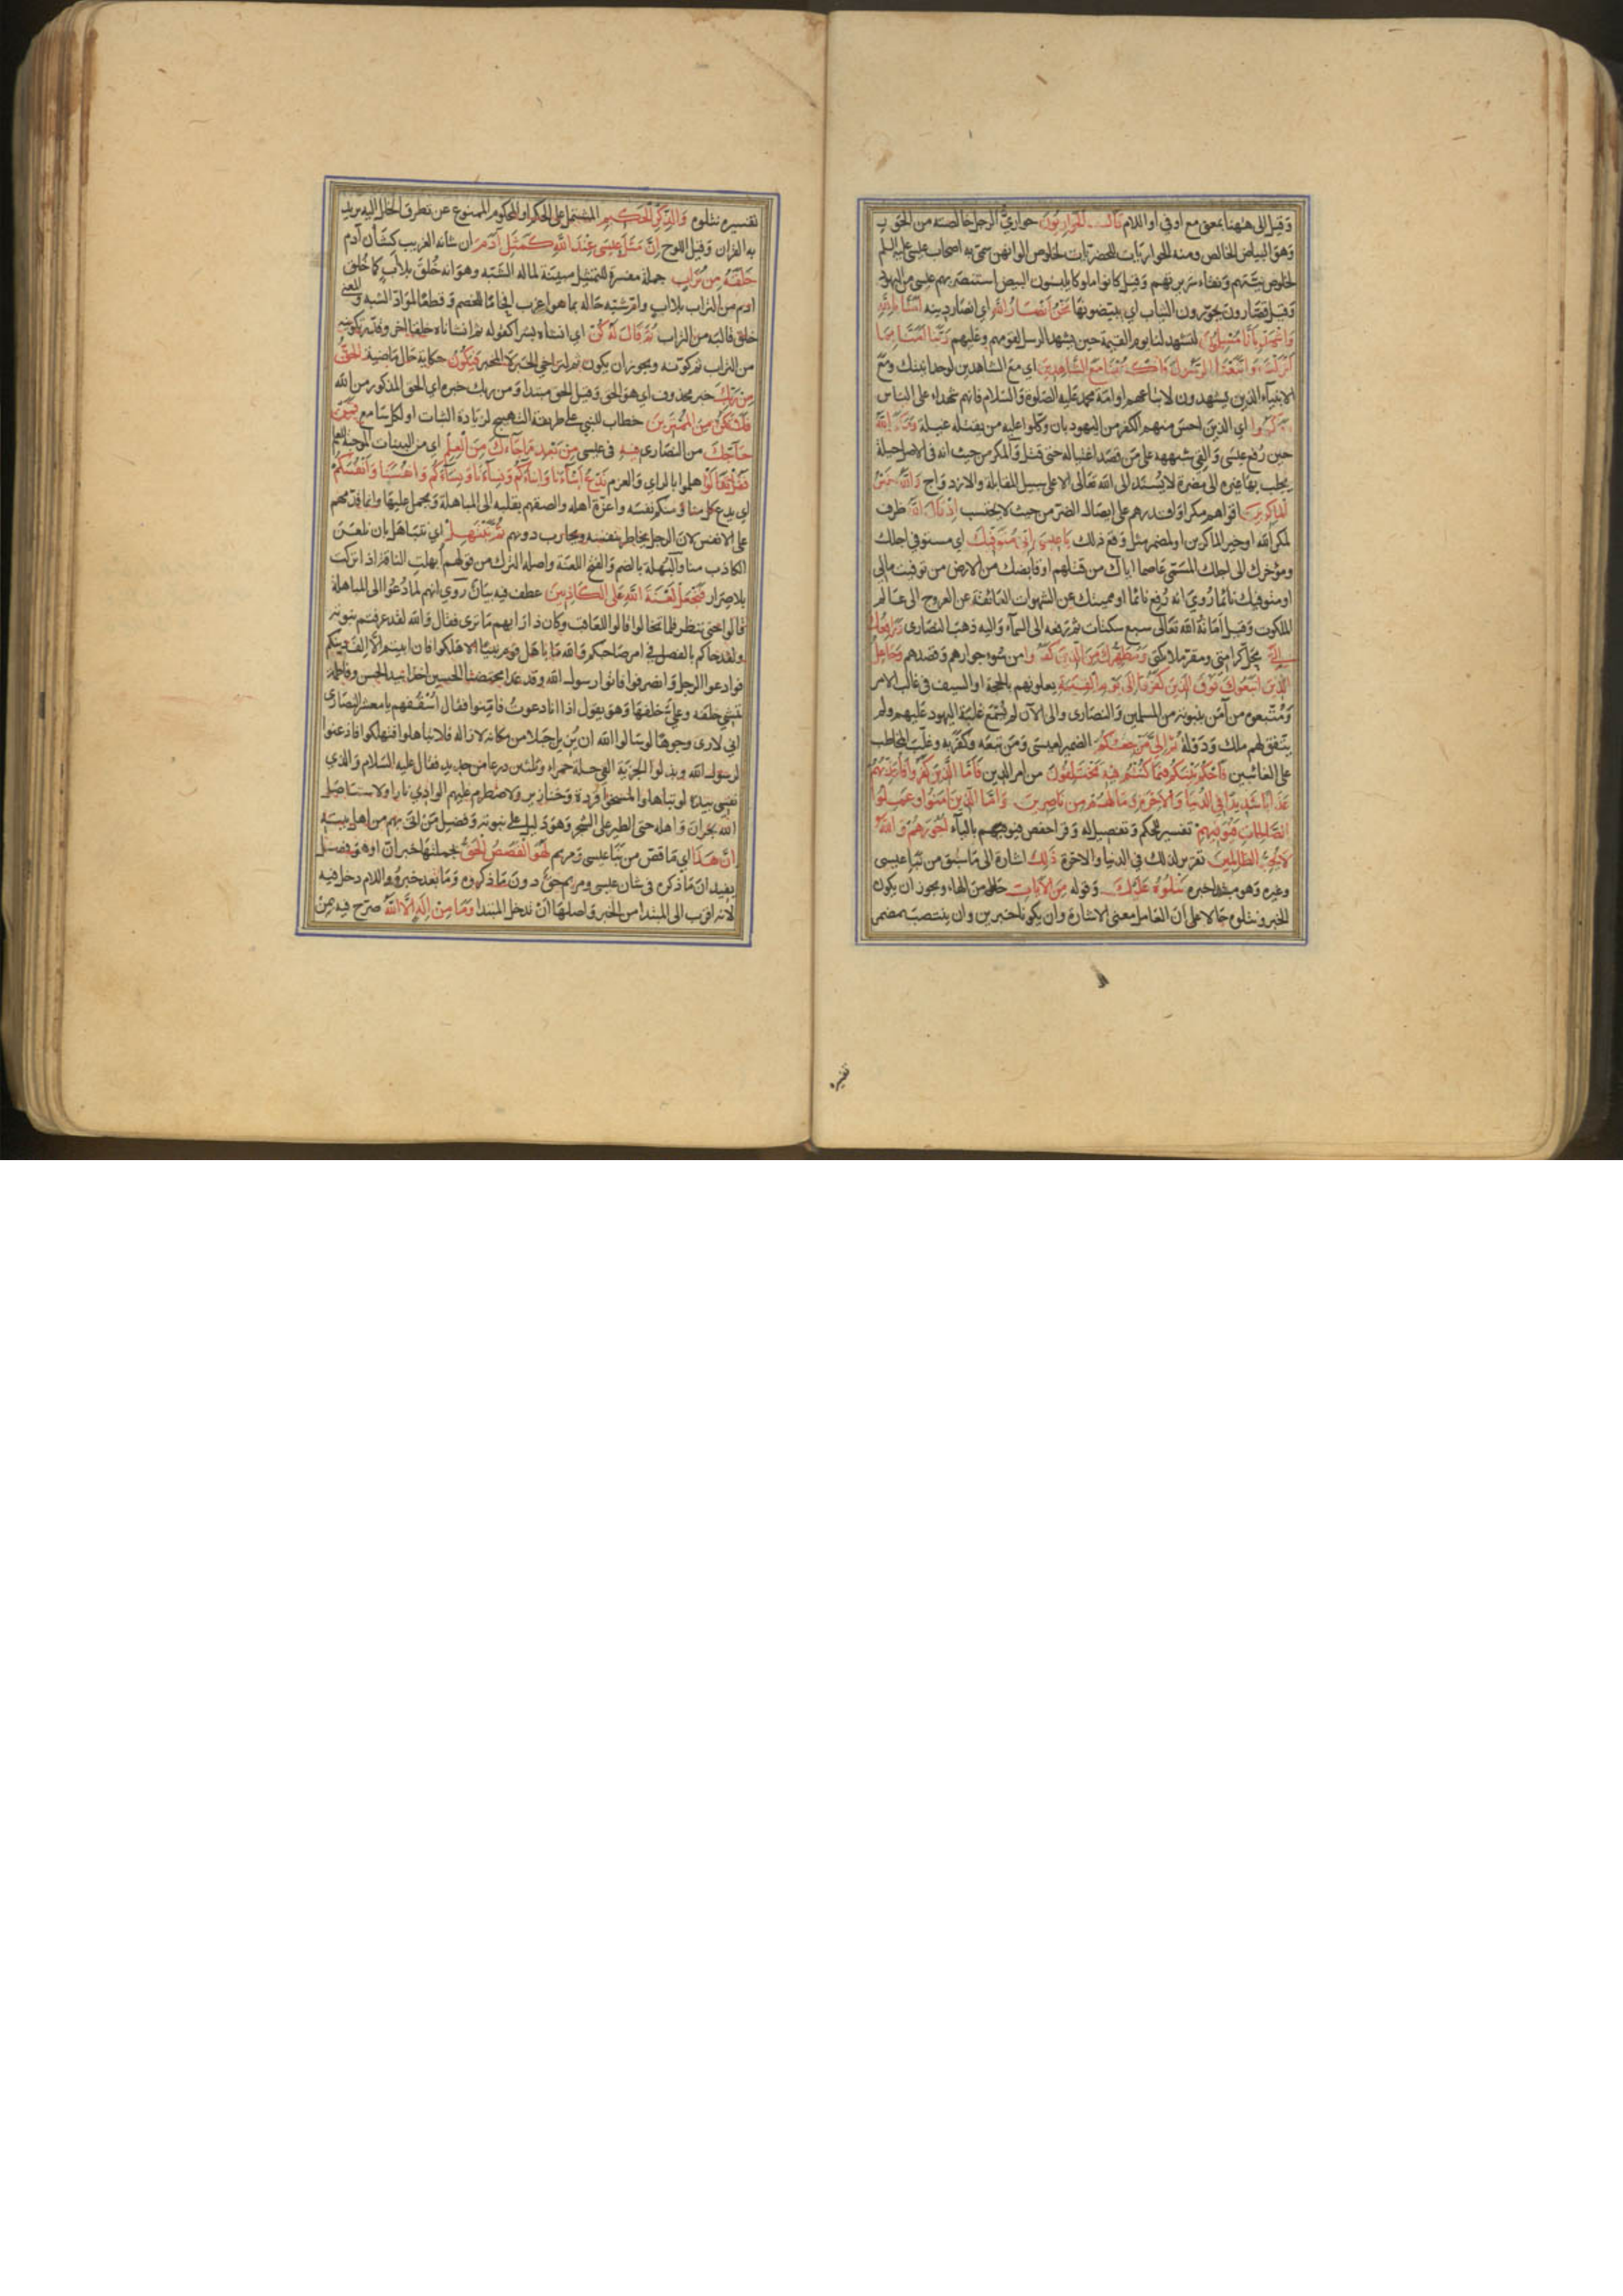 وقيل الى ههنا بمعنى مع او في او اللام قال الحواريون حواري الرجل خالصته من الحور
وهو البياض الخالص ومنه الحواريات للحضريات لخلوص الوانهن سمي به اصحاب عيسى عليه السلم
لخلوص نيتهم ونقاء سريرتهم وقيل كانوا ملوكا يلبسون البيض استنصر بهم عيسى من اليهود
وقيل قصارون يحورون الثياب اي يبيضونها نحن انصار الله اي انصار دينه آمنا بالله
واشهد بانا مسلمون لتشهد لنا يوم القيمة حين يشهد الرسل لقومهم وعليهم ربنا آمنا بما
انزلت واتبعنا الرسول فاكتبنا مع الشاهدين اي مع الشاهدين لوحدانيتك ومع
الانبياء الذين يشهدون لاتباعهم او امة محمد عليه الصلوة والسلام فانهم شهداء على الناس
ومكروا اي الذين احس منهم الكفر من اليهود بان وكلوا عليه من يقتله غيلة ومكر الله
حين رفع عيسى والقى شبهه على من قصد اغتياله حتى قتل والمكر من حيث انه في الاصل حيلة
يجلب بها غيره الى مضرة لا يسند الى الله تعالى الا على سبيل المقابلة والازدواج والله خير
الماكرين اقواهم مكرا واقدرهم على ايصال الضر من حيث لا يحتسب اذ قال الله ظرف
لمكر الله او خير الماكرين او لمضمر مثل وقع ذلك يا عيسى اني متوفيك اي مستوفي اجلك
ومؤخرك الى اجلك المسمى عاصما اياك من قتلهم او قابضك من الارض من توفيت مالي
او متوفيك نائما روي انه رفع نائما او مميتك عن الشهوات العائقة عن العروج الى عالم
الملكوت وقيل اماته الله تعالى سبع ساعات ثم رفعه الى السمآء واليه ذهب النصارى ورافعك
الي الى محل كرامتي ومقر ملائكتي ومطهرك من الذين كفروا من سوء جوارهم وقصدهم وجاعل
الذين اتبعوك فوق الذين كفروا الى يوم القيمة يعلونهم بالحجة او السيف في غالب الامر
ومتبعوه من آمن بنبوته من المسلمين والنصارى والى الآن لم يسمع غلبة اليهود عليهم ولم
يتفق لهم ملك ودولة ثم الي مرجعكم الضمير لعيسى ومن تبعه وكفر به وغلب المخاطب
على الغائبين فاحكم بينكم فيما كنتم فيه تختلفون من امر الدين فاما الذين كفروا فاعذبهم
عذابا شديدا في الدنيا والآخرة وما لهم من ناصرين واما الذين آمنوا وعملوا
الصالحات فنوفيهم تفسير للحكم وتفصيل له وقرا حفص فيوفيهم باليآء اجورهم والله
لا يحب الظالمين تقرير لذلك في الدنيا والاخرة ذلك اشارة الى ما سبق من نبا عيسى
وغيره وهو مبتدا خبره نتلوه عليك وقوله من الآيات حال من الهاء ويجوز ان يكون
الخبر ونتلوه حالا على ان العامل معنى الاشارة وان يكونا خبرين وان ينتصب بمضمر
تفسيره
تفسيره نتلوه والذكر الحكيم المشتمل على الحكم او المحكوم الممنوع عن تطرق الخلل اليه يريد
به القرآن وقيل اللوح ان مثل عيسى عند الله كمثل آدم ان شانه الغريب كشأن آدم
خلقه من تراب جملة مفسرة للتمثيل مبينة لما له الشبه وهو انه خلق بلا اب كما خلق
ادم من التراب بلا اب وام شبه حاله بما هو اغرب افحاما للخصم وقطعا لمواد الشبه والمعنى
خلق قالبه من التراب ثم قال له كن اي انشاه بشرا كقوله ثم انشاناه خلقا اخر وقدر تكوينه
من التراب ثم كونه ويجوز ان يكون ثم لتراخي الخبر لا المخبر فيكون حكاية حال ماضية الحق
من ربك خبر محذوف اي هو الحق وقيل الحق مبتدا ومن ربك خبره اي الحق المذكور من الله
فلا تكن من الممترين خطاب للنبي على طريقة التهييج لزيادة الثبات او لكل سامع فمن
حاجك من النصارى فيه في عيسى من بعد ما جاءك من العلم اي من البينات الموجبة للعلم
فقل تعالوا هلموا بالراي والعزم ندع ابناءنا وابناءكم ونساءنا ونساءكم وانفسنا وانفسكم
اي يدع كل منا ومنكم نفسه واعزة اهله والصقهم بقلبه الى المباهلة ويحمل عليها وانما قدمهم
على الانفس لان الرجل يخاطر بنفسه ويحارب دونهم ثم نبتهل اي نتباهل بان نلعن
الكاذب منا والبهلة بالضم والفتح اللعنة واصله الترك من قولهم ابهلت الناقة اذا تركت
بلا صرار فنجعل لعنة الله على الكاذبين عطف فيه بيان روي انهم لما دعوا الى المباهلة
قالوا حتى ننظر فلما تخالوا قالوا للعاقب وكان ذا رايهم ما ترى فقال والله لقد عرفتم نبوته
ولقد جاكم بالفصل في امر صاحبكم والله ما باهل قوم نبيا الا هلكوا فان ابيتم الا الف دينكم
فوادعوا الرجل وانصرفوا فاتوا رسول الله وقد غدا محتضنا الحسين اخذا بيد الحسن وفاطمة
تمشي خلفه وعلي خلفها وهو يقول اذا انا دعوت فامنوا فقال اسقفهم يا معشر النصارى
اني لارى وجوها لو سالوا الله ان يزيل جبلا من مكانه لازاله فلا تباهلوا فتهلكوا فاذعنوا
لرسول الله وبذلوا الجزية الفي حلة حمراء وثلثين درعا من حديد فقال عليه السلام والذي
نفسي بيده لو تباهلوا لمسخوا قردة وخنازير ولاضطرم عليهم الوادي نارا ولاستاصل
الله نجران واهله حتى الطير على الشجر وهو دليل على نبوته وفضل من اتى بهم من اهل بيته
ان هذا اي ما قص من نبا عيسى ومريم لهو القصص الحق بجملتها خبر ان او هو فصل
يفيد ان ما ذكره في شان عيسى ومريم حق دون ما ذكروه وما بعده خبره واللام دخل فيه
لانه اقرب الى المبتدا من الخبر واصلها ان تدخل المبتدا وما من اله الا الله صرح فيه بمن